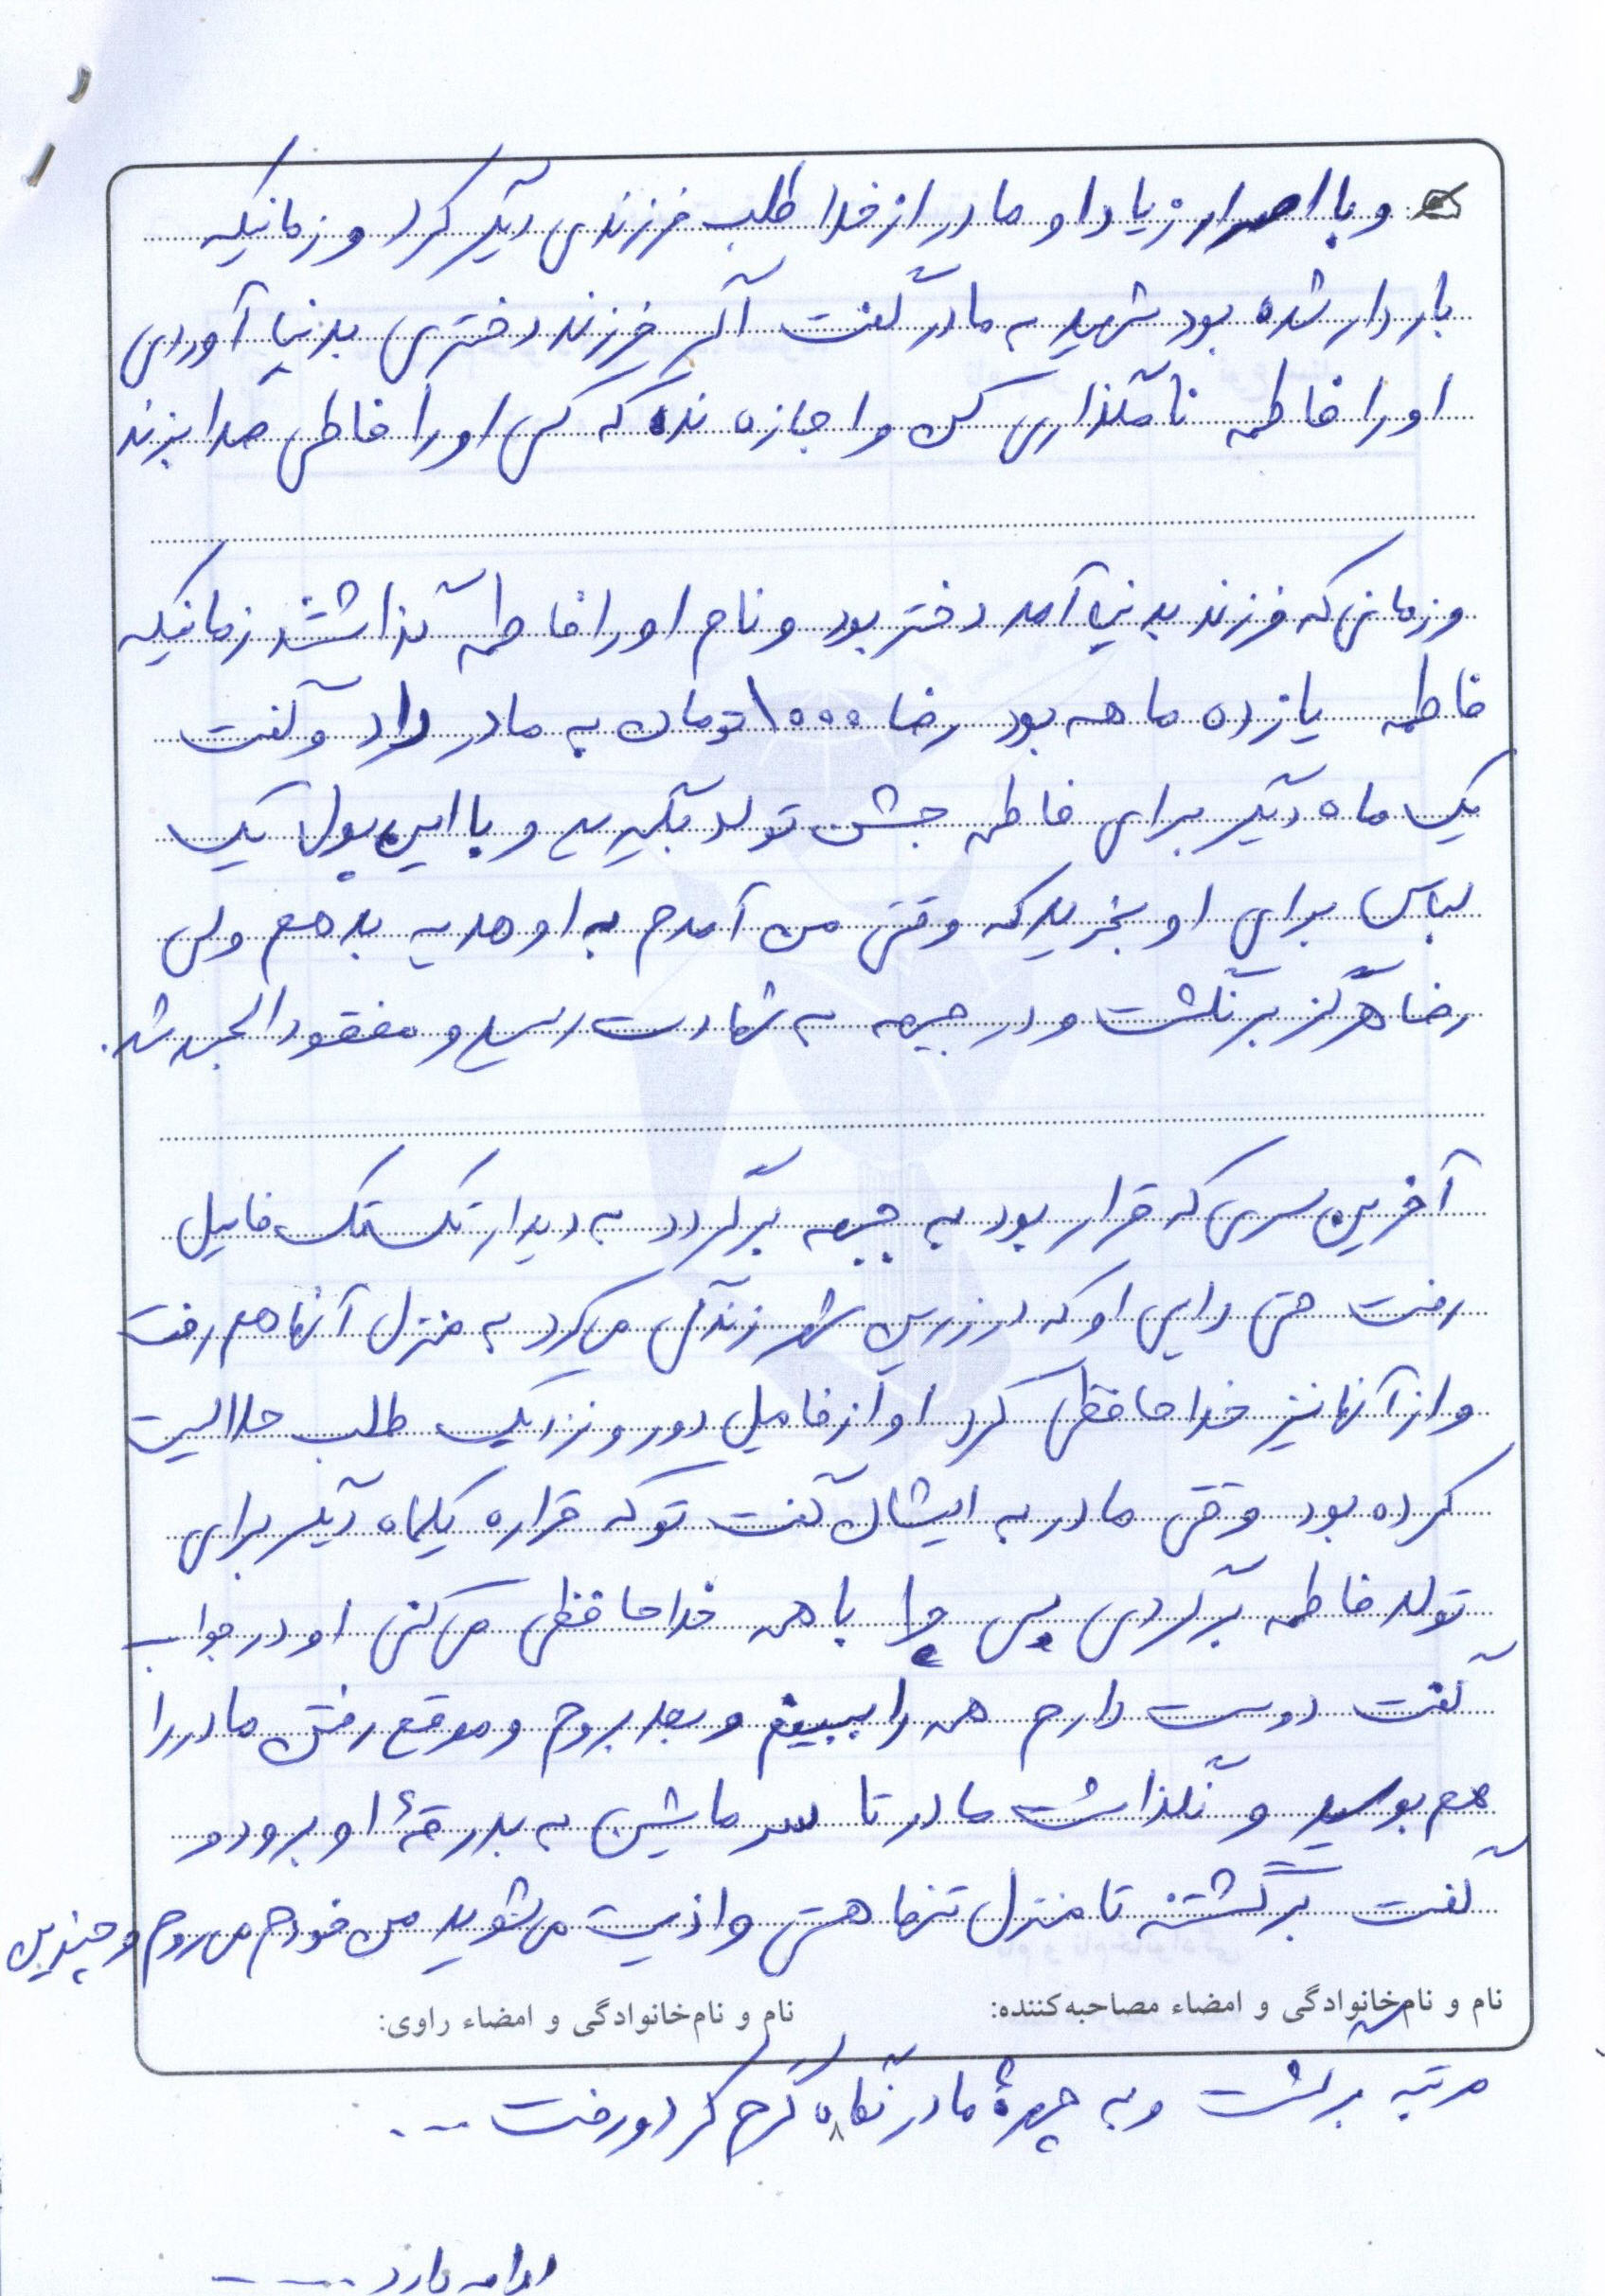 و با اصرار زیاد او مادر از خدا طلب فرزندی دیگر کرد و زمانیکه
باردار شده بود شهید به مادر گفت اگر فرزند دختری بدنیا آوردی
او را فاطمه نامگذاری کن و اجازه نده که کسی او را فاطی صدا بزند
و زمانی که فرزند بدنیا آمد دختر بود و نام او را فاطمه گذاشتند زمانیکه
فاطمه یازده ماهه بود رضا ۱۰۰۰ تومان به مادر داد و گفت
یک ماه دیگر برای فاطمه جشن تولد بگیرید و با این پول یک
لباس برای او بخرید که وقتی من آمدم به او هدیه بدهم ولی
رضا هرگز برنگشت و در جبهه به شهادت رسید و مفقودالجسد شد.
آخرین سری که قرار بود به جبهه برگردد به دیدار تک تک فامیل
رفت حتی دایی او که در زرین شهر زندگی می کرد به منزل آنها هم رفت
و از آنها نیز خداحافظی کرد او از فامیل دور و نزدیک طلب حلالیت
کرده بود وقتی مادر به ایشان گفت تو که قراره یکماه دیگر برای
تولد فاطمه برگردی پس چرا با همه خداحافظی می کنی او در جواب
گفت دوست دارم همه را ببینم و بعد بروم و موقع رفتن مادر را
هم بوسید و نگذاشت مادر تا سر ماشین به بدرقهٔ او برود و
گفت برگشتنه تا منزل تنها هستی و اذیت می شوید من خودم می روم و چندین
نام و نام‌خانوادگی و امضاء مصاحبه‌کننده: نام و نام‌خانوادگی و امضاء راوی:
مرتبه برگشت و به چهرهٔ مادر نگاه گرم کرد و رفت ...
ادامه دارد .....